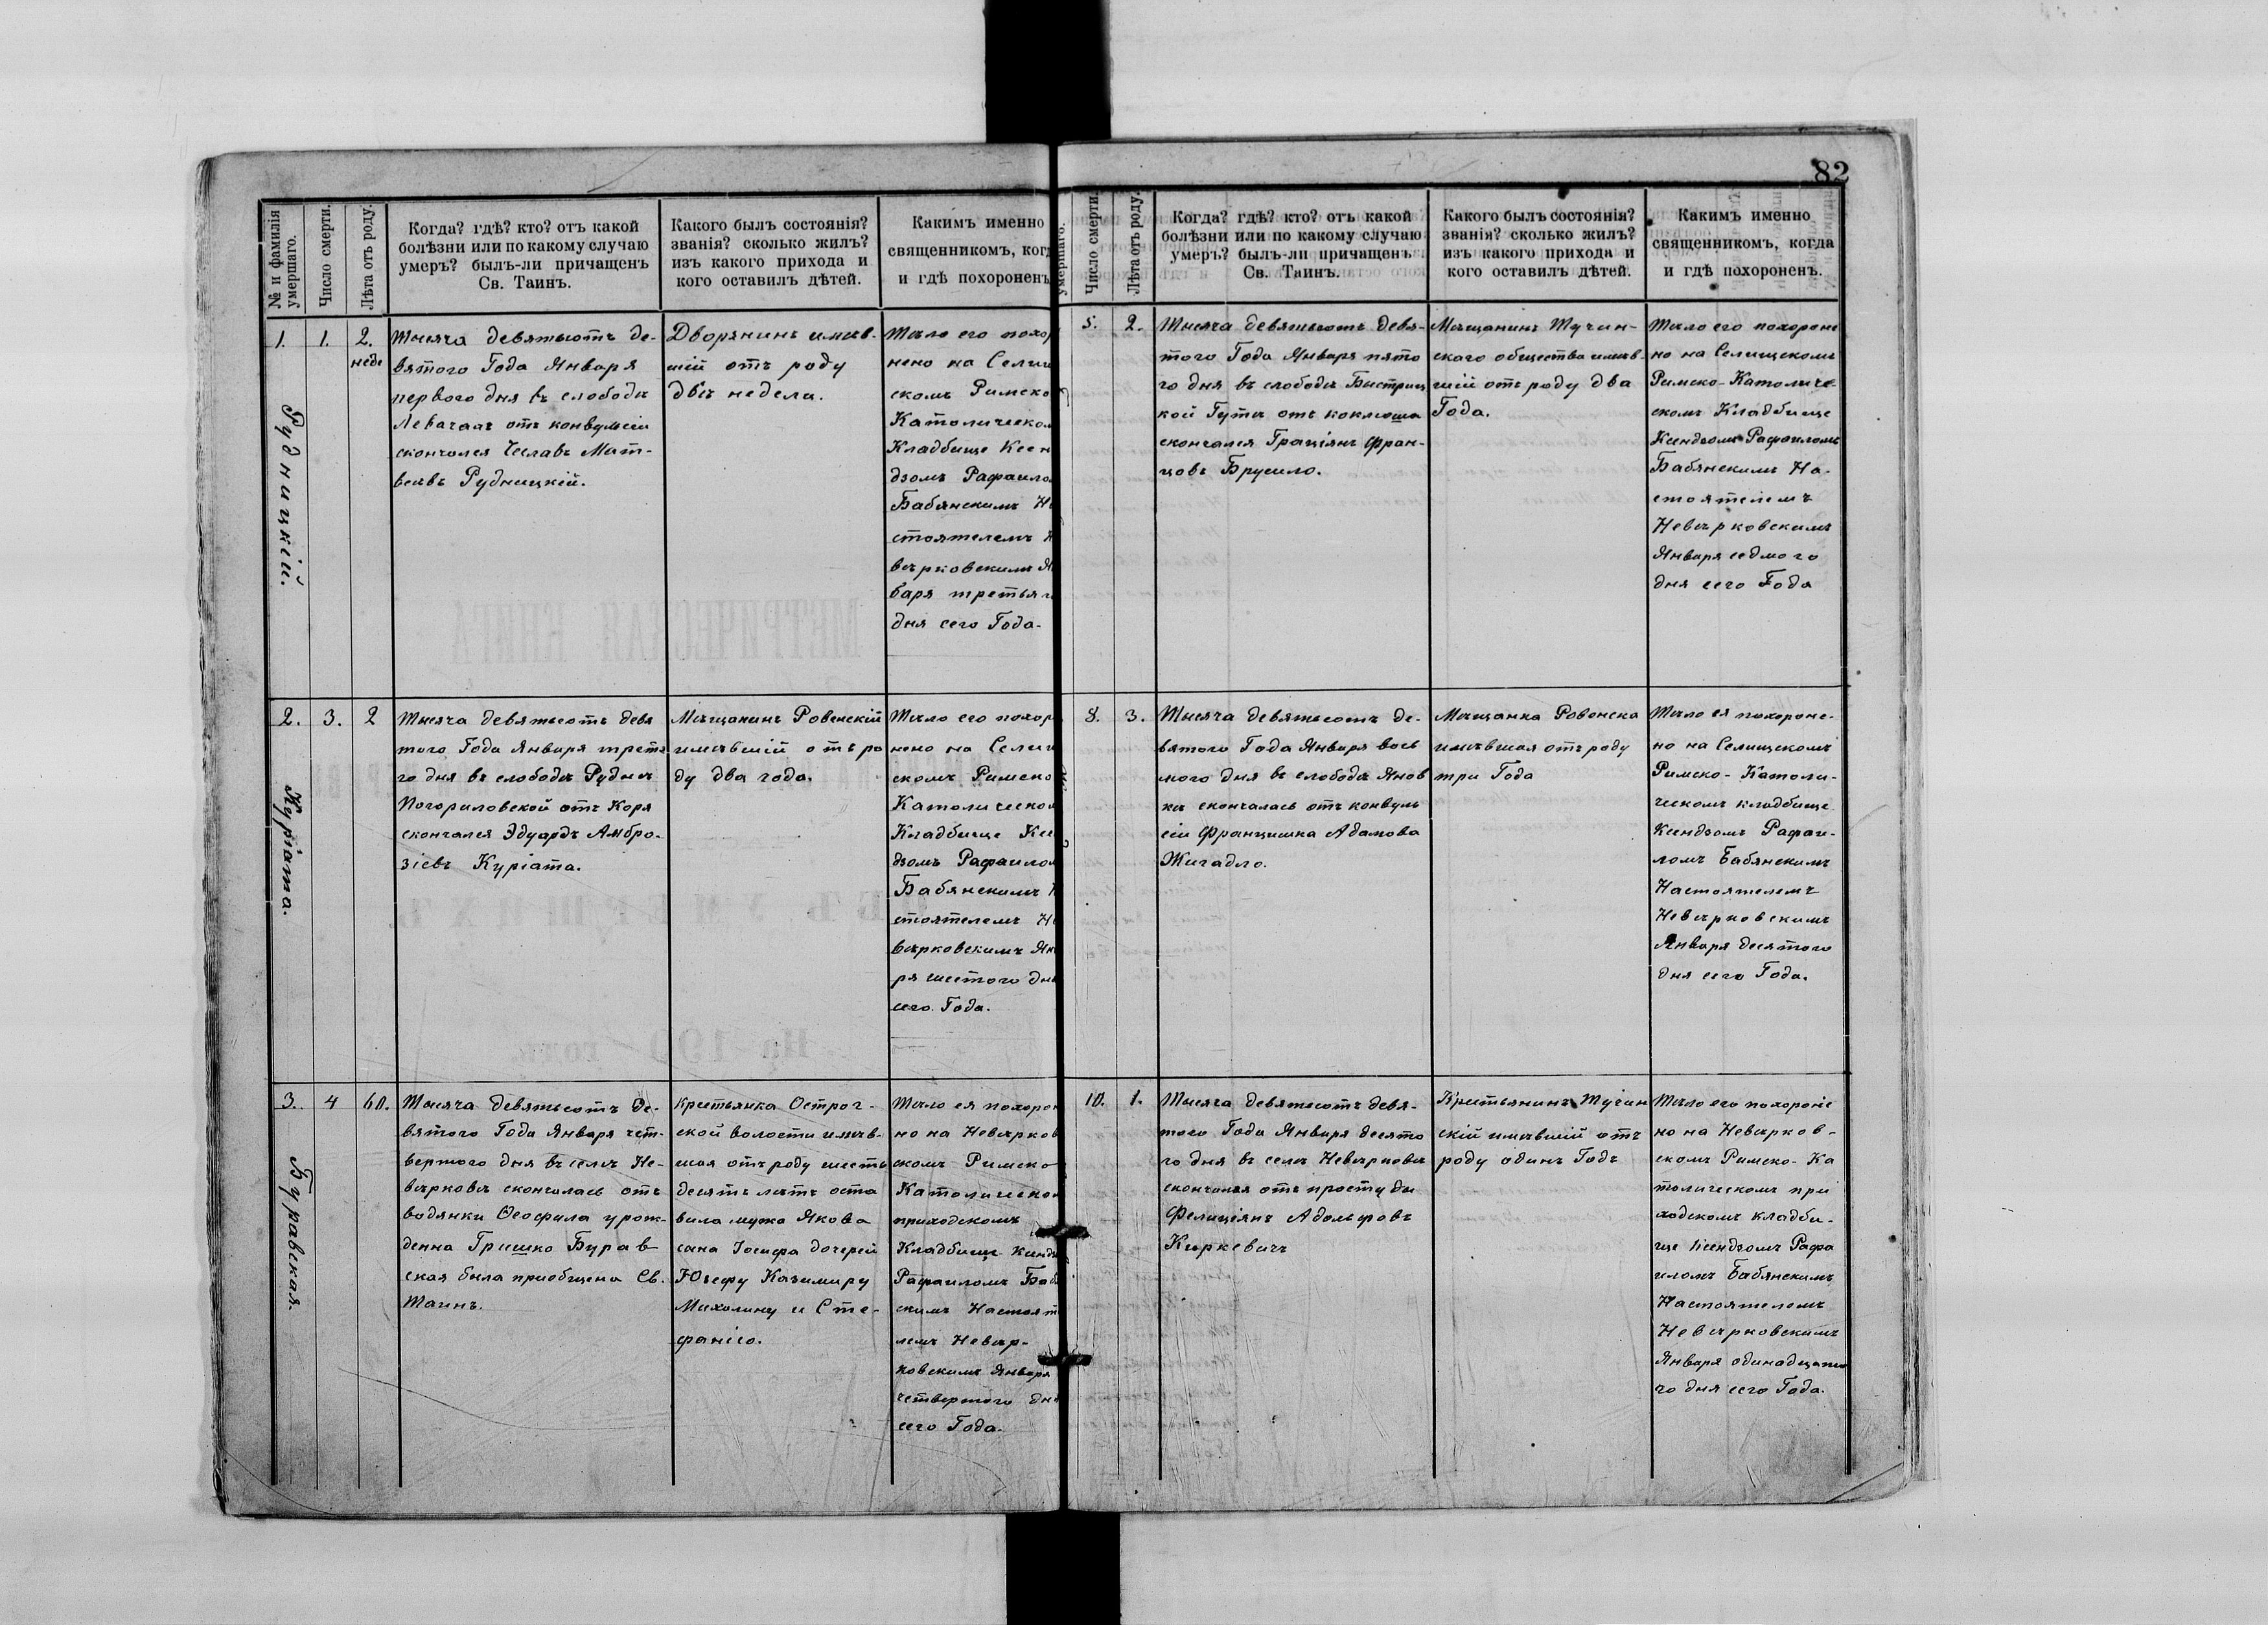 82
№ и фамилія
умершаго.
Число смерти.
Лѣта отъ роду.
Когда? гдѣ? кто? отъ какой
болѣзни или по какому случаю
умеръ? былъ-ли причащенъ
Св. Таинъ.
Какого былъ состоянія?
званія? сколько жилъ?
изъ какого прихода и
кого оставилъ дѣтей.
Какимъ именно
священникомъ, когд
и гдѣ похороненъ
1.
Рудницкій.
1.
2.
неде
Тысяча девятьсотъ де-
вятого Года Января
первого дня въ слободѣ
Левачахъ отъ конвулсіи
скончался Чеславъ Мат-
веявъ Рудницкій.
Дворянинъ имѣв-
шій отъ роду
двѣ недели.
Тѣло его похор
нено на Селищ
скомъ Римско
Католическом
Кладбище Ксен
дзомъ Рафаилом
Бабянскимъ На
стоятелемъ Н
вѣрковскимъ Ян
варя третьяг
дня сего Года.
2.
Куріата.
3.
2
Тысяча девятьсотъ девя
того Года Января третя
го дня въ слободѣ Рудня
Погориловской отъ Коря
скончался Эдуардъ Амбро-
зіевъ Куріата.
Мѣщанинъ Ровенскій
имѣвшій отъ ро
ду два года.
Тѣло его похор
нено на Селищ
скомъ Римско
Католическом
Кладбище Ксе
дзомъ Рафаилом
Бабянскимъ Н
стоятелемъ Не
вѣрковскимъ Ян
ря шестого дня
сего Года.
3.
Буравская.
4
60.
Тысяча девятьсотъ де-
вятого Года Января чет-
вертого дня въ селѣ Не-
вѣрковѣ скончалась отъ
водянки Ѳеофила урож-
денна Гришко Бурав
ская была приобщена Св.
Таинъ.
Крестьянка Острог-
ской волости имѣв-
шая отъ роду шесть
десятъ лѣтъ оста
вила мужа Якова
сына Іосифа дочерей
Юзефу Казимиру
Михалину и Сте-
фанію.
Тѣло ея похорон
но на Невѣрков
скомъ Римско
Католическом
приходскомъ
Кладбище Ксенд
Рафаиломъ Баб
скимъ Настоят
лемъ Невѣр-
ковскимъ Января
четвертого дня
сего Года.
умершаго.
Число смерти.
Лѣта отъ роду.
Когда? гдѣ? кто? отъ какой
болѣзни или по какому случаю
умеръ? былъ-ли причащенъ
Св. Таинъ.
Какого былъ состоянія?
званія? сколько жилъ?
изъ какого прихода и
кого оставилъ дѣтей.
Какимъ именно
священникомъ, когда
и гдѣ похороненъ.
5.
2.
Тысяча девятьсотъ девя-
того Года Января пято
го дня въ слободѣ Быстриц
кой Гутѣ отъ коклюша
скончался Граціянъ Фран-
цовъ Брусило.
Мѣщанинъ Тучин-
скаго общества имѣв-
шій отъ роду два
Года.
Тѣло его похороне
но на Селищскомъ
Римско-Католиче
скомъ Кладбище
Ксендзомъ Рафаиломъ
Бабянскимъ На-
стоятелемъ
Невѣрковскимъ
Января седмого
дня сего Года
8.
3.
Тысяча девятьсотъ де-
вятого Года Января вось
мого дня въ слободѣ Янов
кѣ скончалась отъ конвуль
сіи Францишка Адамова
Жигадло.
Мѣщанка Ровенска
имѣвшая отъ роду
три Года
Тѣло ея похороне-
но на Селищскомъ
Римско-Католи-
ческомъ кладбище
Ксендзомъ Рафаи-
ломъ Бабянскимъ
Настоятелемъ
Невѣрковскимъ
Января десятого
дня сего Года.
10.
1.
Тысяча девятьсотъ девя-
того Года Января десято
го дня въ селѣ Невѣрковѣ
скончался отъ простуды
Фелиціянъ Адольфовъ
Киркевичъ
Крестьянинъ Тучин
скій имѣвшій отъ
роду одинъ Годъ
Тѣло его похороне
но на Невѣрков-
скомъ Римско-Ка
толическомъ при
ходскомъ кладби-
ще Ксендзомъ Рафа
иломъ Бабянскимъ
Настоятелемъ
Невѣрковскимъ
Января одинадцато
го дня сего Года.